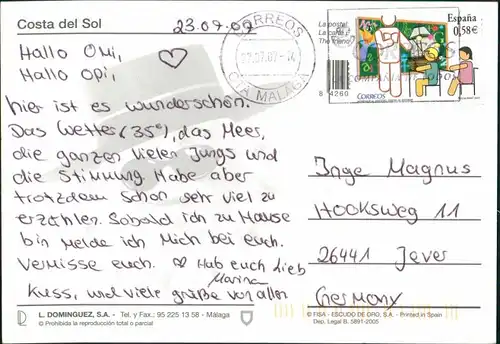 Costa del Sol
23.07.07
Hallo Omi,
Hallo Opi,
hier ist es wunderschön.
Das Wetter (35°), das Meer,
die ganzen vielen Jungs und
die Stimmung. Habe aber
trotzdem schon sehr viel zu
erzählen. Sobald ich zu Hause
bin melde ich mich bei euch.
Vermisse euch. ♡ Hab euch lieb
Marina
Kuss, und viele grüße von allen
L. DOMINGUEZ, S.A. - Tel. y Fax.: 95 225 13 58 - Málaga
© Prohibida la reproducción total o parcial
CORREOS
MALAGA
La postal
España
0,58€
CORREOS
8 4260
Inge Magnus
Hooksweg 11
26441 Jever
Germany
© FISA - ESCUDO DE ORO, S.A. - Printed in Spain
Dep. Legal B. 5891-2005